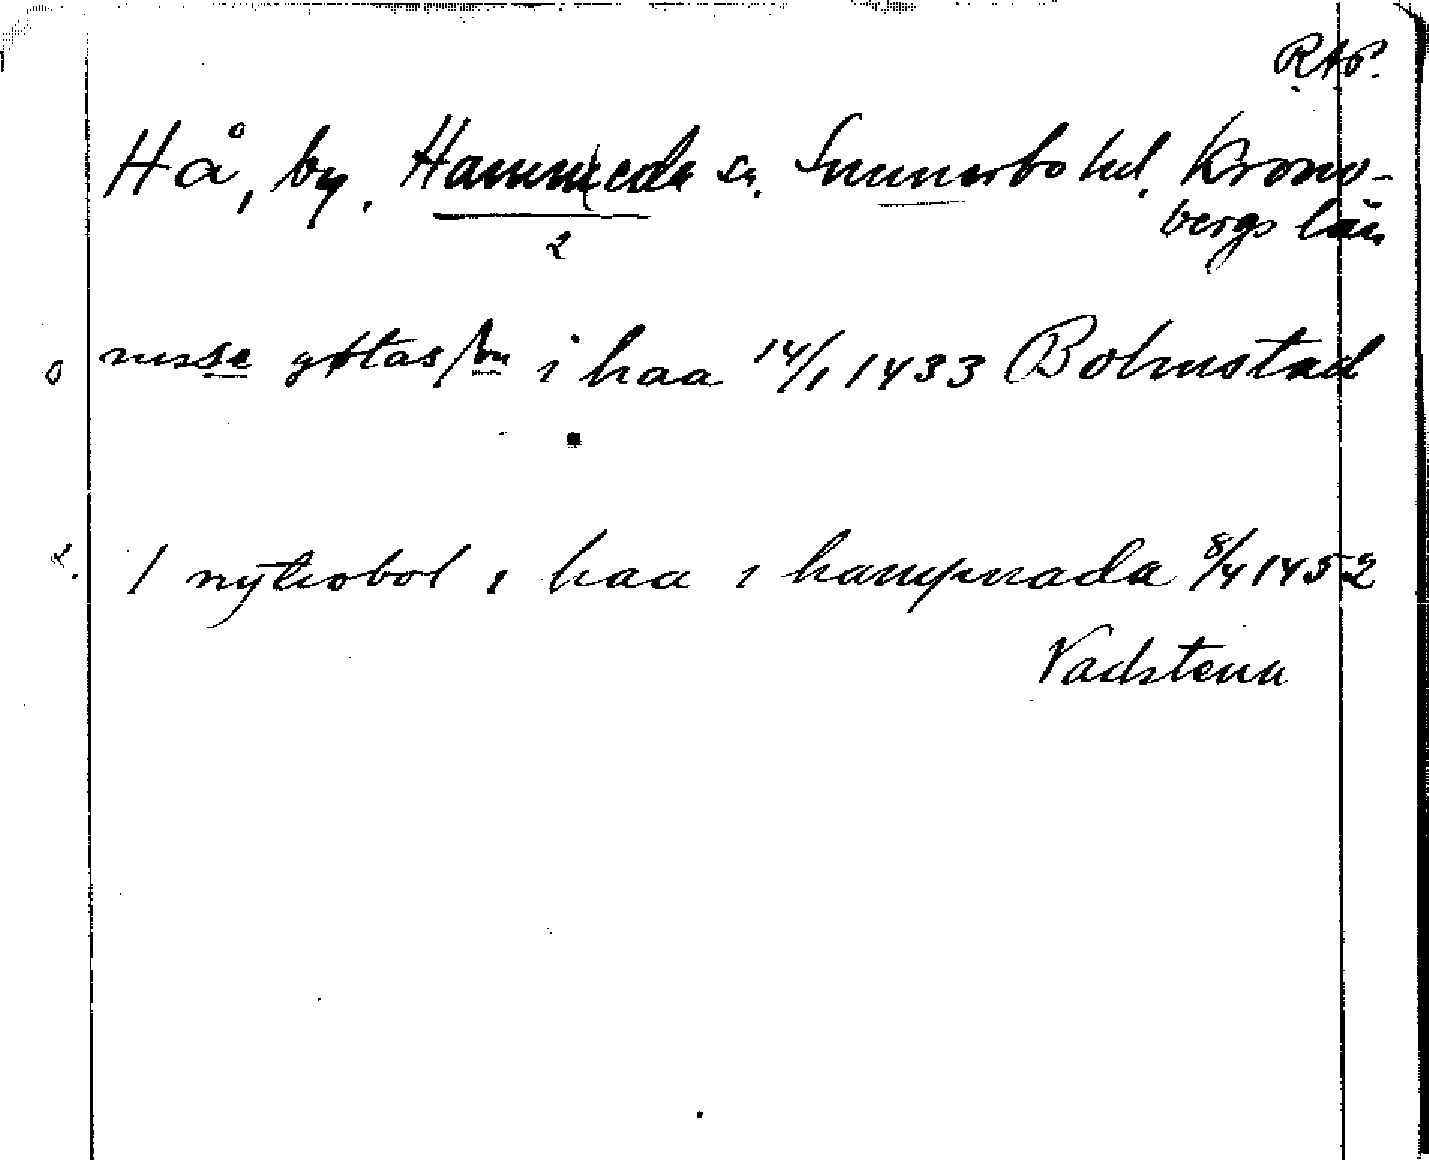 RAP.
Hå, by. Hamneda sn. Sunnerbo hd. Krono-
bergs län
2
0 nisse gøtasson i haa 14/1 1433 Bolmstad
2. 1 nytiobol i haa i hampnada 8/4 1452
Vadstena